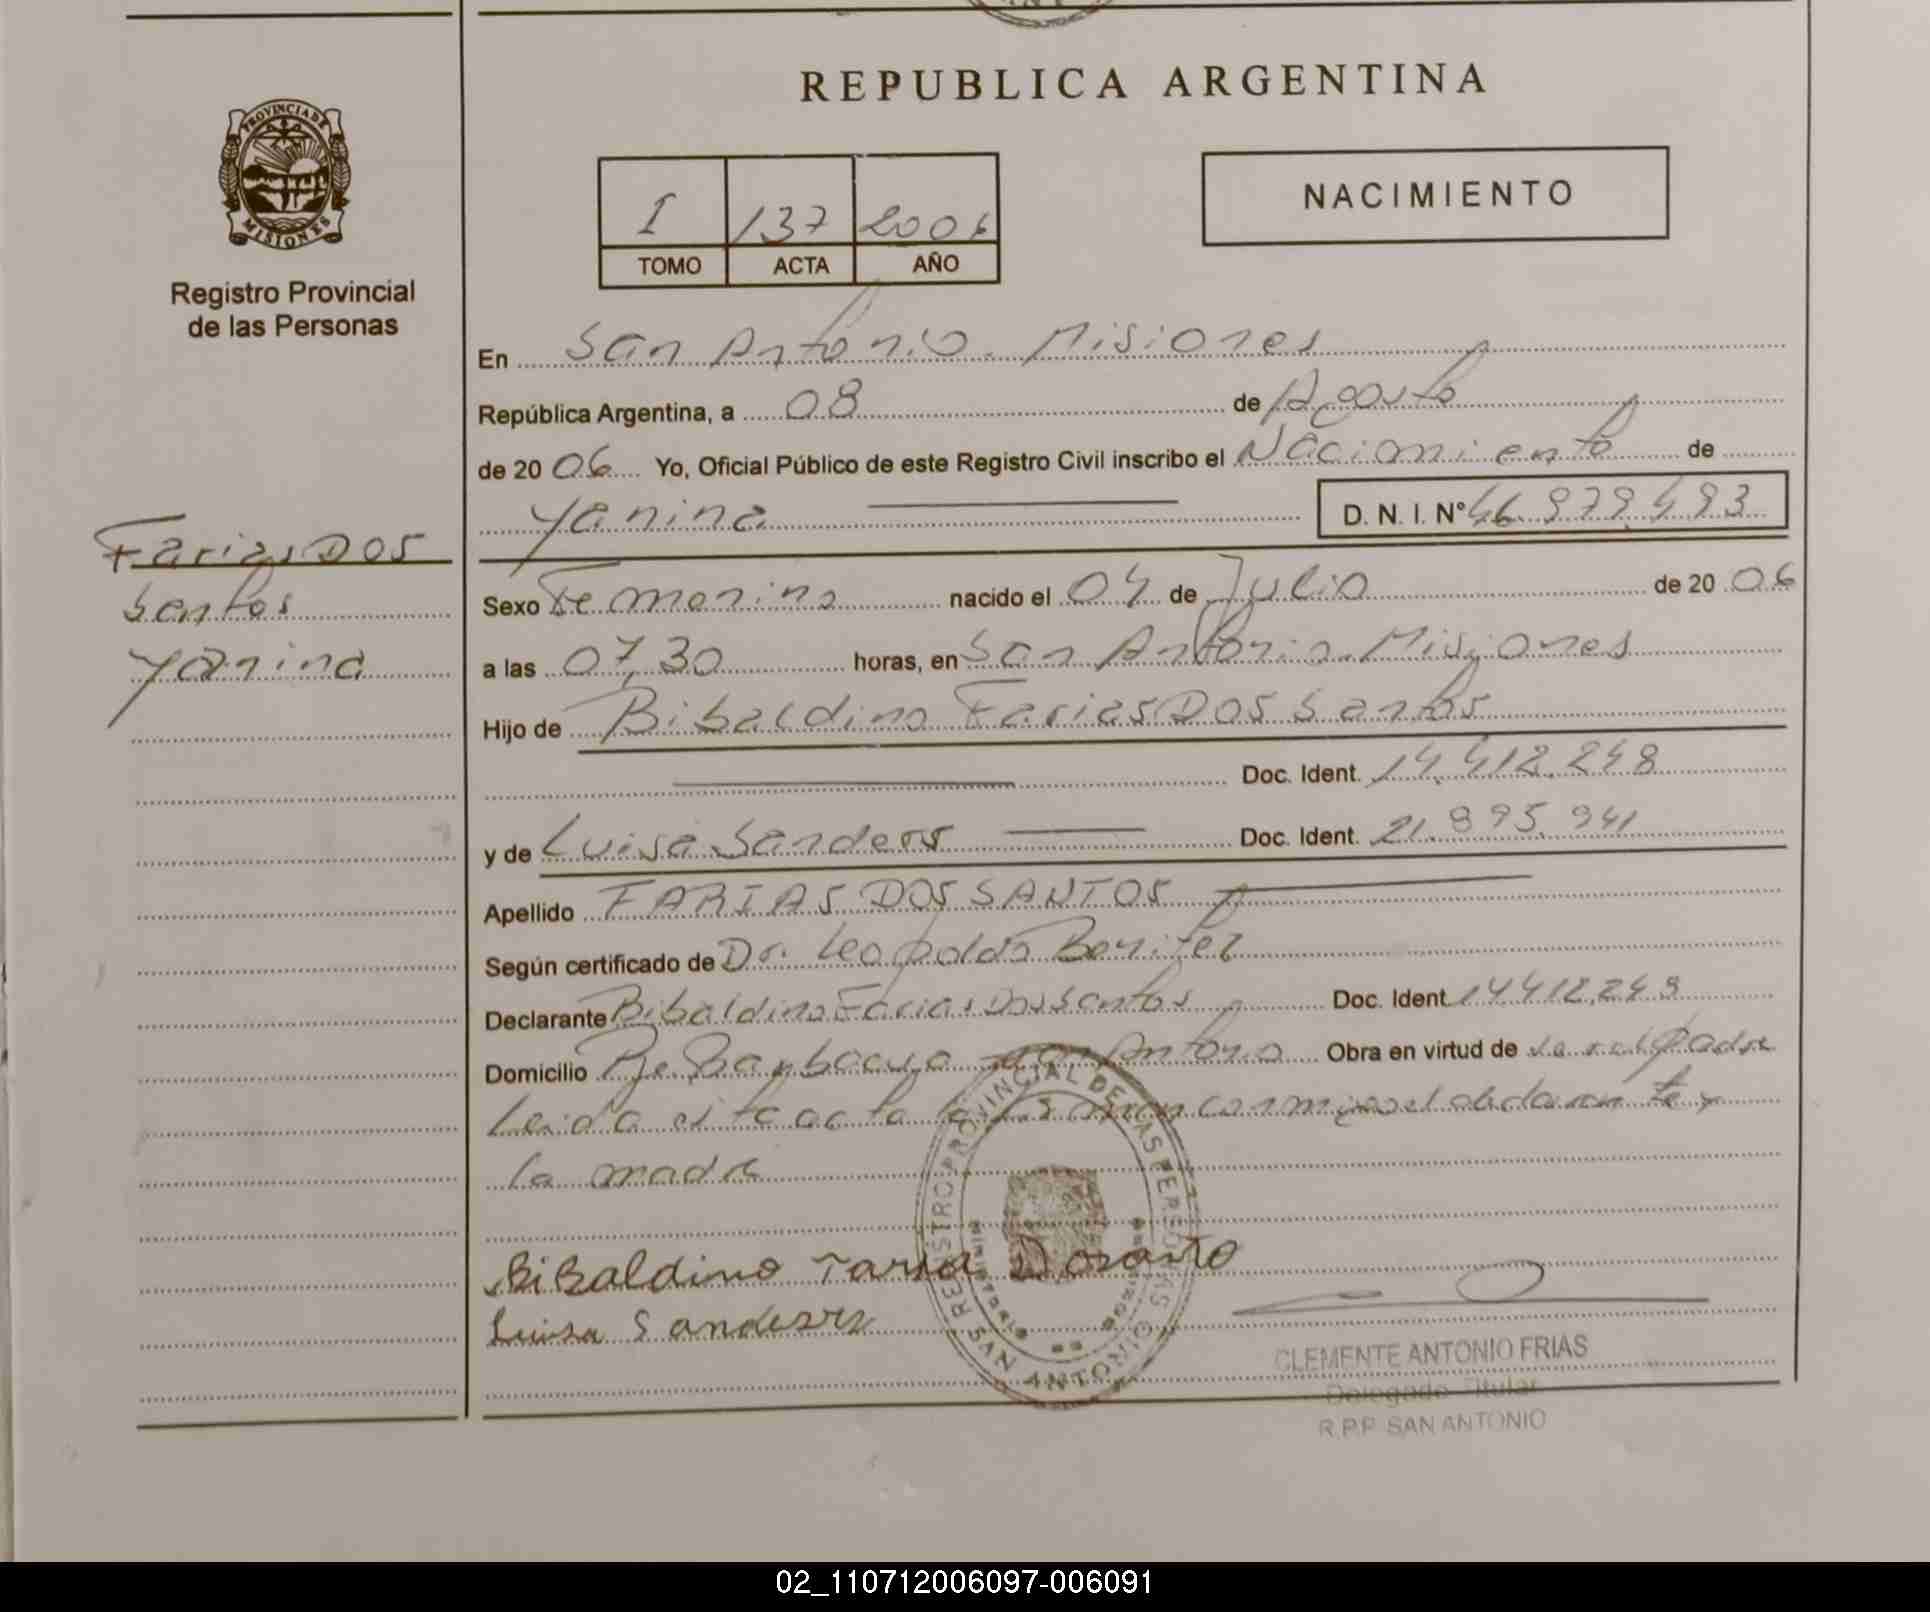 REPUBLICA ARGENTINA
PROVINCIA DE MISIONES
Registro Provincial
de las Personas
NACIMIENTO
I 137 2006
TOMO ACTA AÑO
En San Antonio. Misiones
República Argentina, a 08 de Agosto
de 20 06 Yo, Oficial Público de este Registro Civil inscribo el Nacimiento de
Yanina D. N. I. N° 46.979.493
Farias Dos
Santos
Yanina
Sexo Femenino nacido el 04 de Julio de 20 06
a las 07,30 horas, en San Antonio. Misiones
Hijo de Bibaldino Farias Dos Santos
Doc. Ident. 14.412.248
y de Luisa Sanders Doc. Ident. 21.895.941
Apellido FARIAS DOS SANTOS
Según certificado de Dr. Leopoldo Benitez
Declarante Bibaldino Farias Dos Santos Doc. Ident. 14412.248
Domicilio Pje San Antonio Obra en virtud de ser el Padre
Leida el acta la conmigo el declarante y
la madre
Bibaldino Faria Dosanto
Luisa Sanders
REGISTRO PROVINCIAL DE LAS PERSONAS
SAN ANTONIO
CLEMENTE ANTONIO FRIAS
Delegado Titular
R.P.P. SAN ANTONIO
02_110712006097-006091